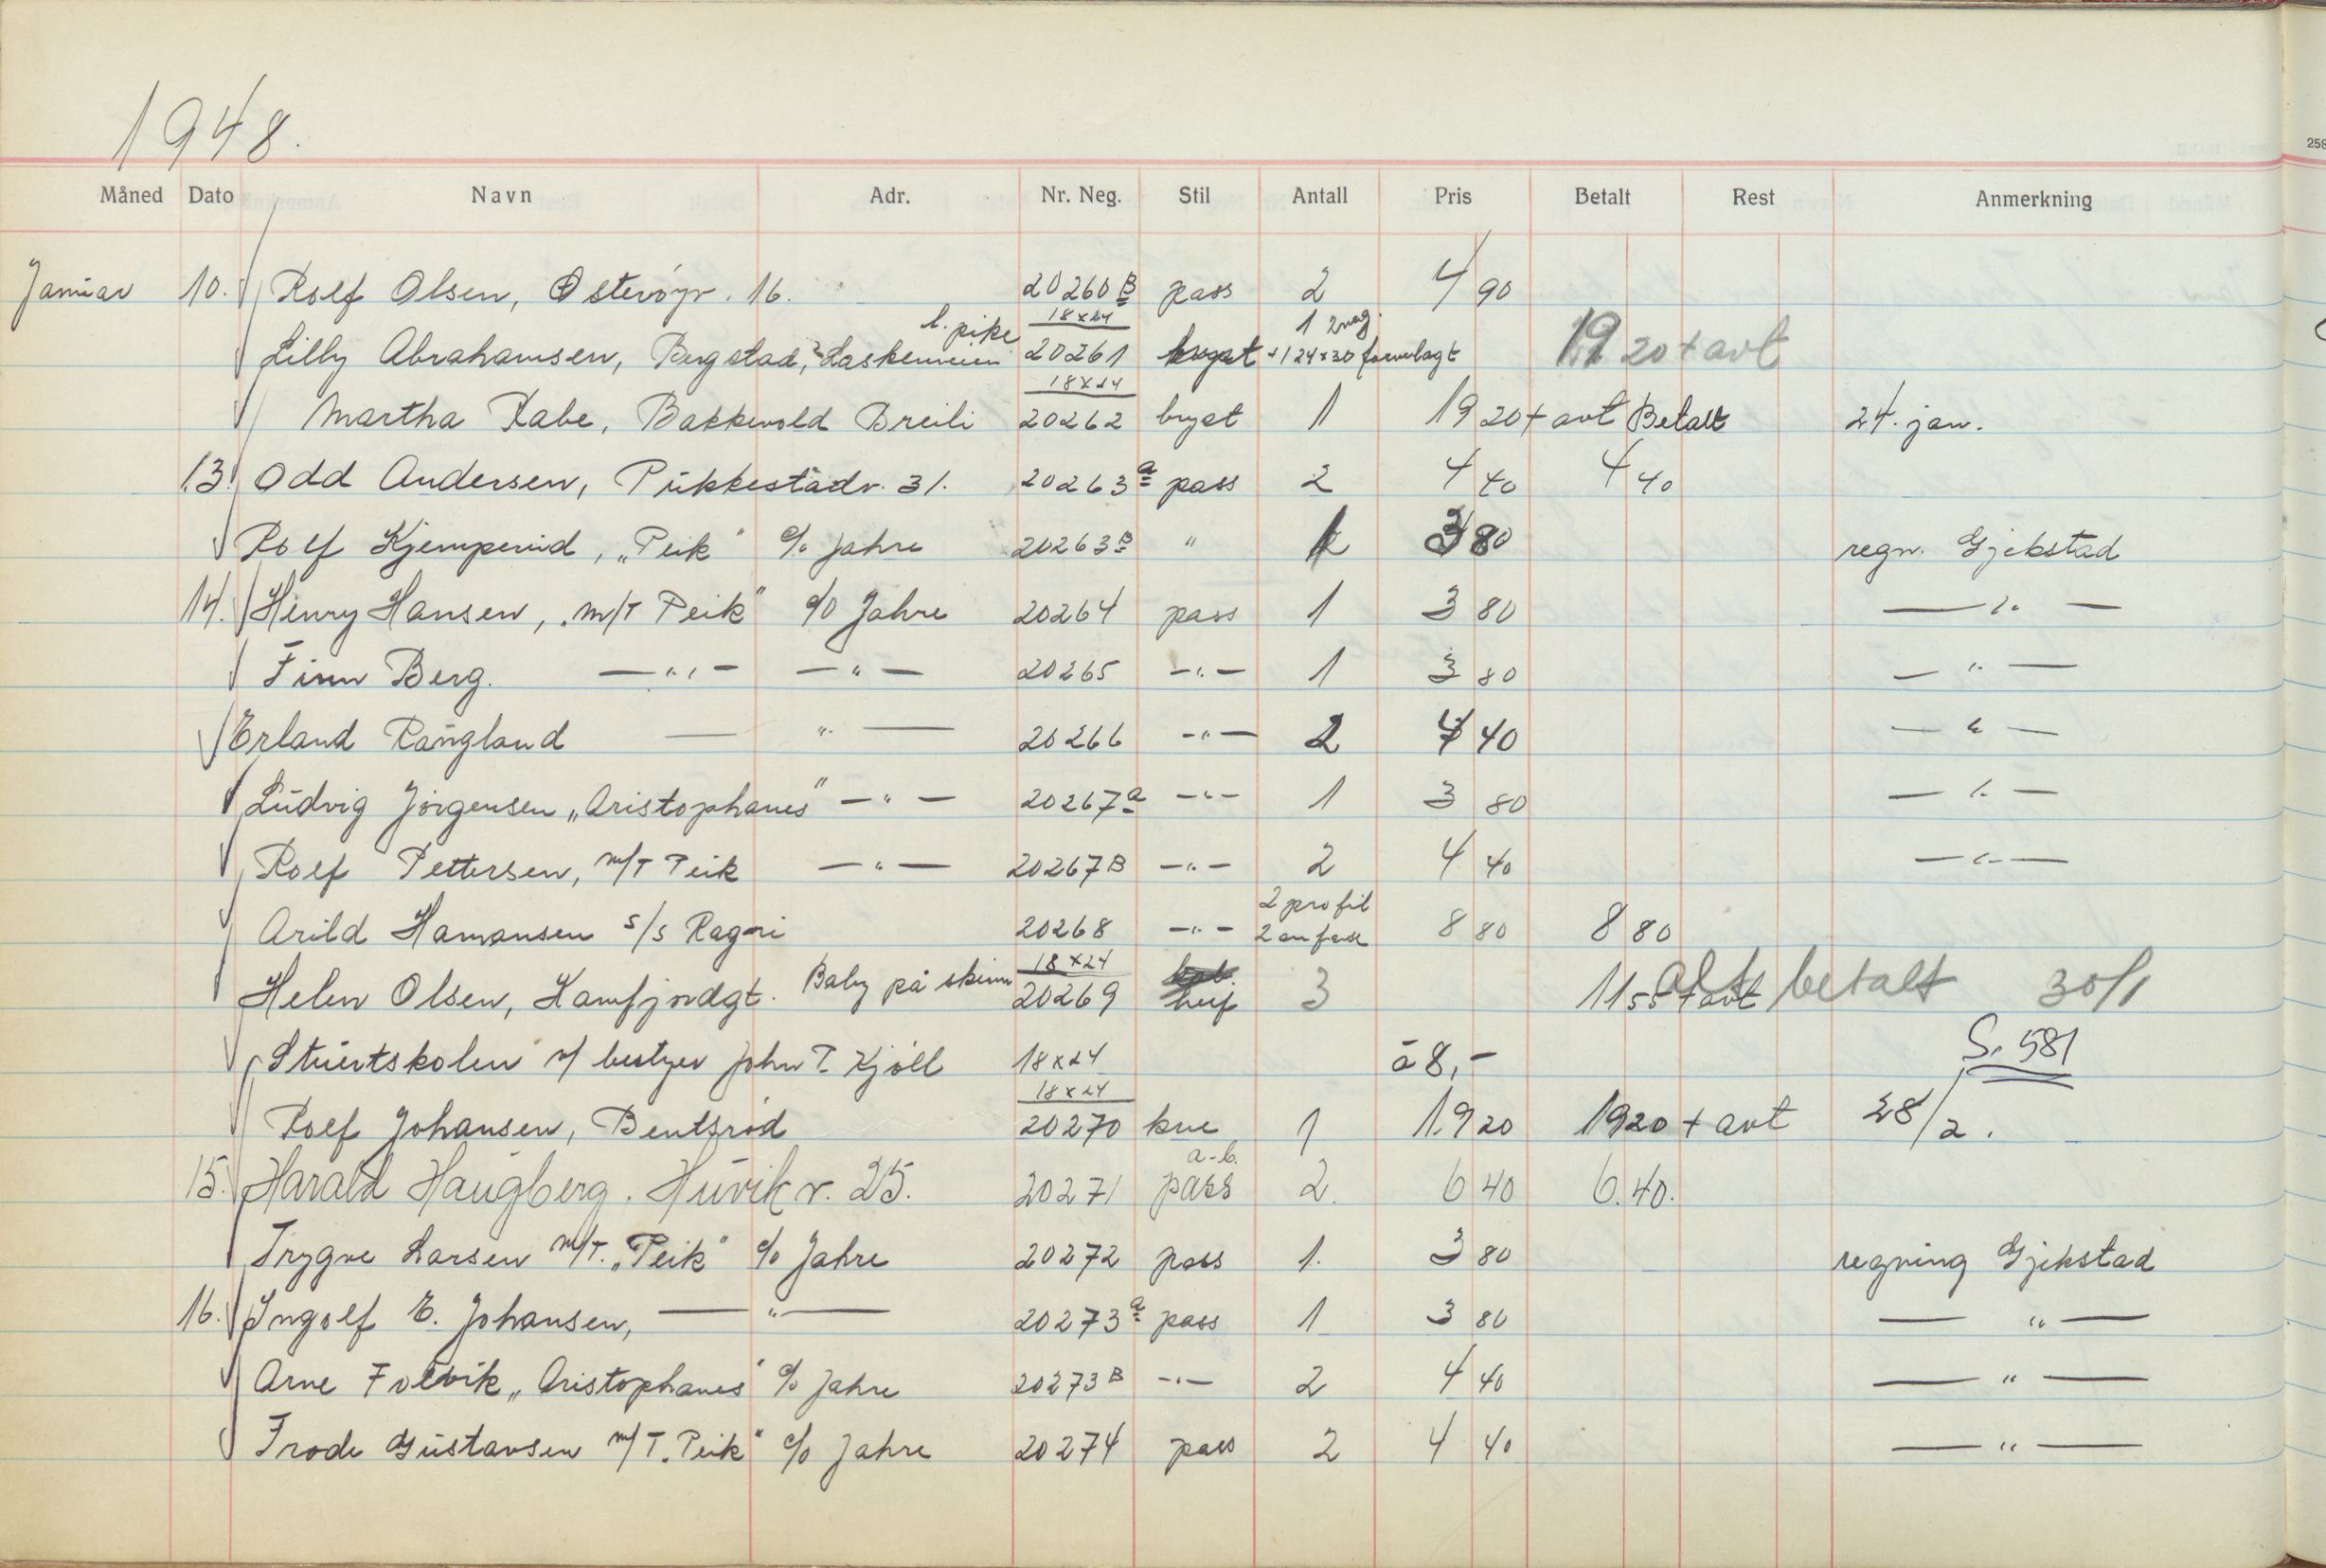 1948.
258
Måned Dato Navn Adr. Nr. Neg. Stil Antall Pris Betalt Rest Anmerkning
Januar 10. Rolf Olsen, Østevöyr. 16. 20260 B pass 2 4 90
l. pike 18x24 1 2neg.
Lilly Abrahamsen, Bergstad, 20261 bryst + 1 24x30 19 20 + avt
18x24
Martha Rabe, Bakkevold Breili 20262 bryst 1 19 20 + avt Betalt 24. jan.
13. Odd Andersen, Pükkestadv. 31. 20263 a pass 2 4 40 4 40
Rolf Kjemperud, „Peik" c/o Jahre 20263 B " 1 3 80 regn. Gjekstad
14. Henry Hansen, „M/T Peik" c/o Jahre 20264 pass 1 3 80 — " —
Finn Berg. — " — — " — 20265 — " — 1 3 80 — " —
Erland Rangland — " — 20266 — " — 2 4 40 — " —
Ludvig Jörgensen „Aristophanes" — " — 20267 a — " — 1 3 80 — " —
Rolf Pettersen, M/T Peik — " — 20267 B — " — 2 4 40 — " —
2 profil
Arild Hamansen S/S Ragni 20268 — " — 2 en face 8 80 8 80
18x24
Helen Olsen, Kamfjordgt. Baby på skinn 20269 3 11 55 + avt alt betalt 30/1
Stuertskolen v/ bestyer John T. Kjöll 18x24 à 8,- S. 581
18x24
Rolf Johansen, Bentsröd 20270 kne 1 19 20 19 20 + avt 28/2.
a-b.
15. Harald Haugberg. Huvikv. 25. 20271 pass 2. 6 40 6.40.
Trygve Larsen M/T. „Peik" c/o Jahre 20272 pass 1. 3 80 regning Gjekstad
16. Ingolf E. Johansen, — " — 20273 a pass 1 3 80 — " —
Arne Folvik „Aristophanes" c/o Jahre 20273 B — " — 2 4 40 — " —
Frode Gustavsen M/T. Peik" c/o Jahre 20274 pass 2 4 40 — " —